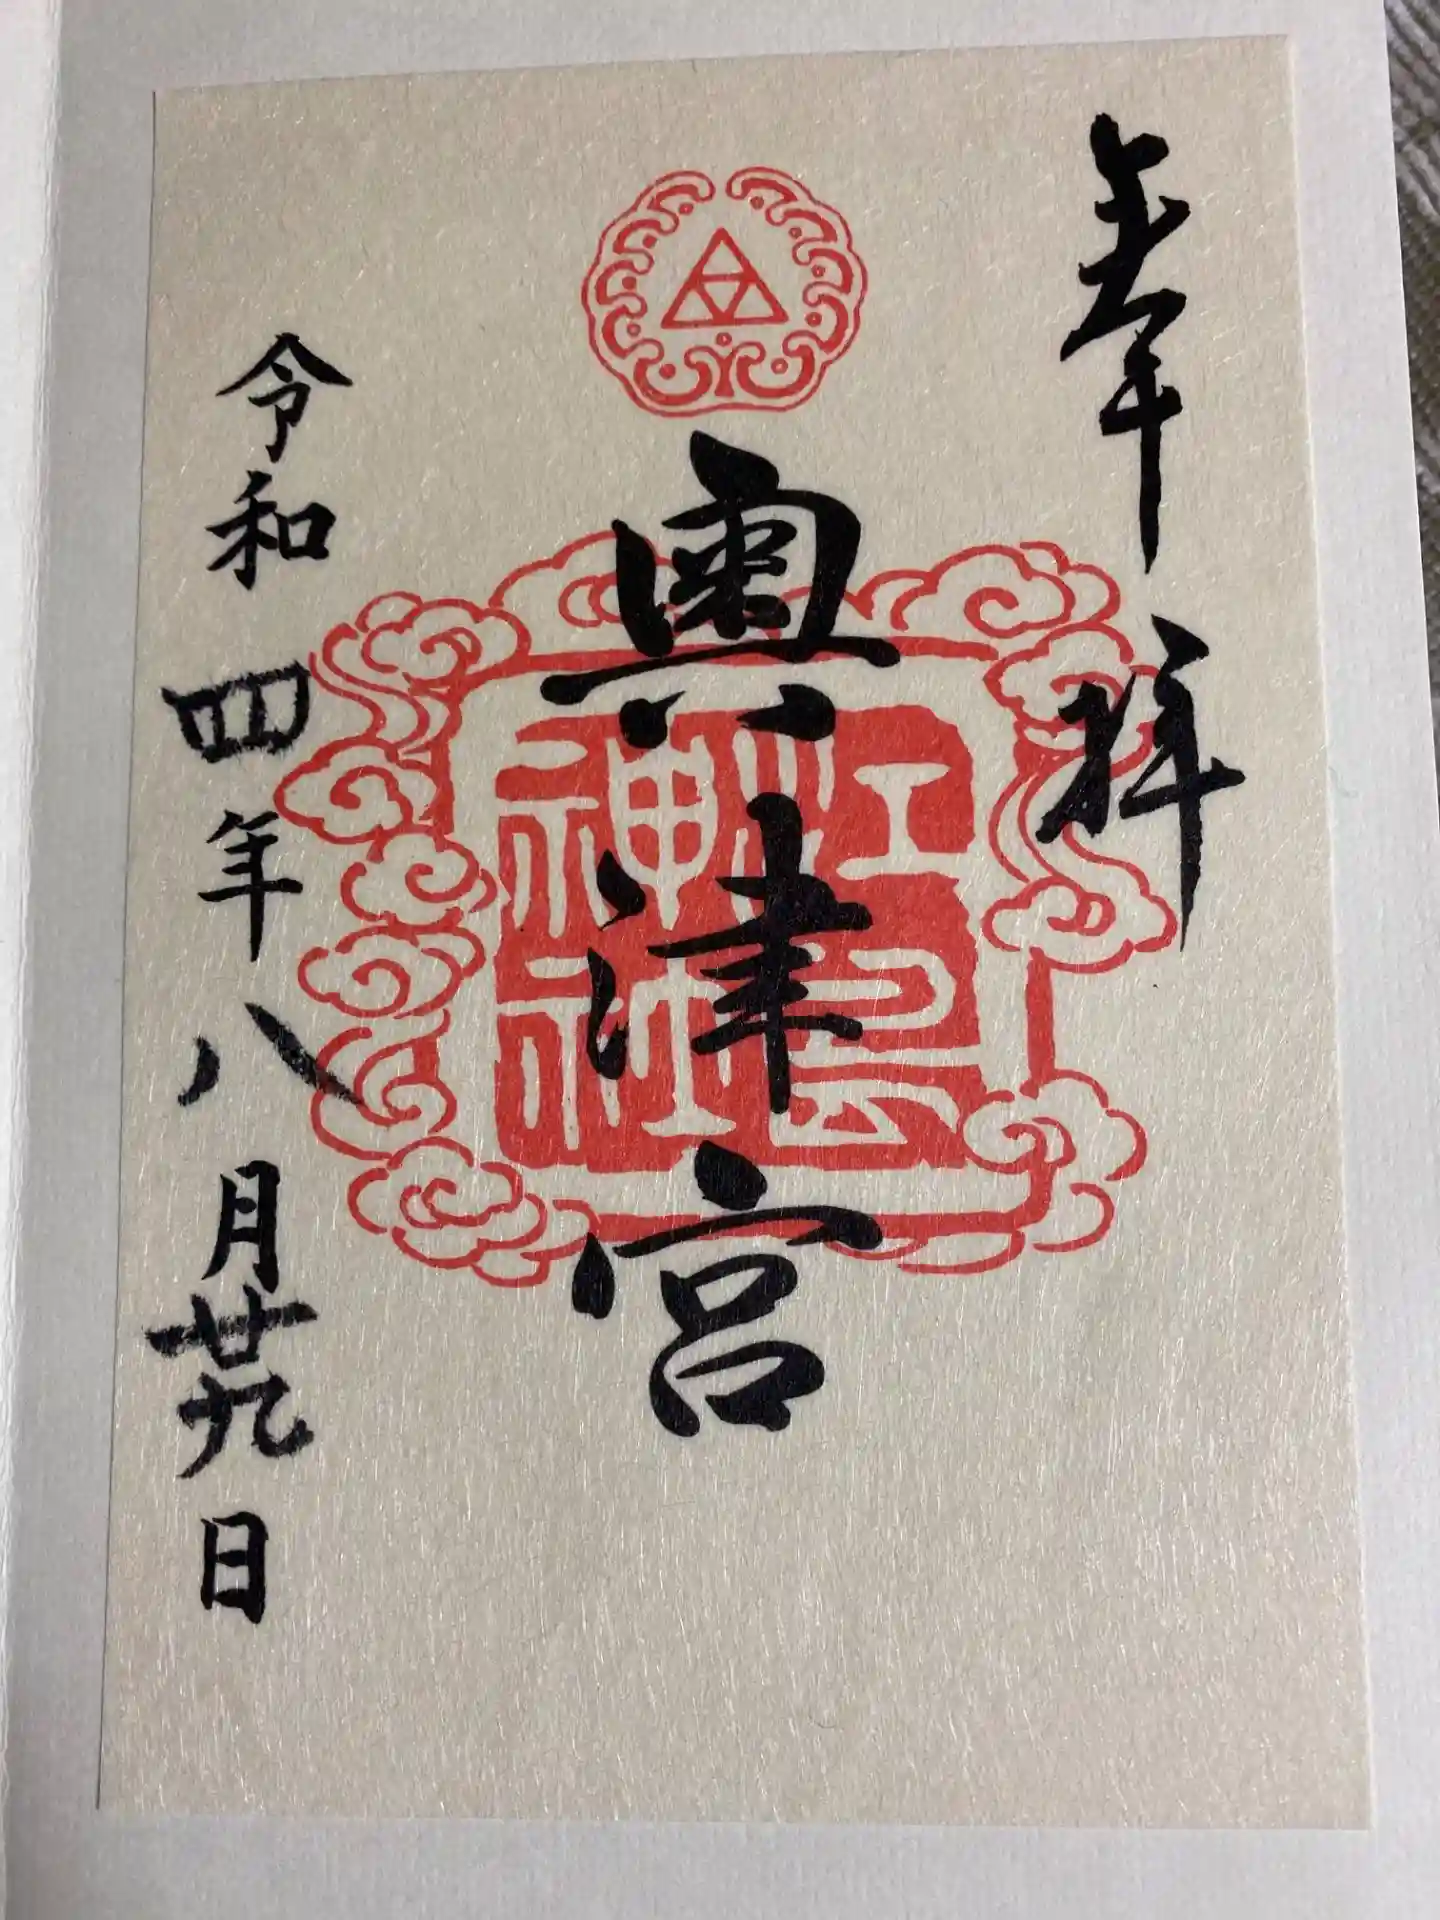 奉拝
奥津宮
江島神社
令和四年八月廿九日